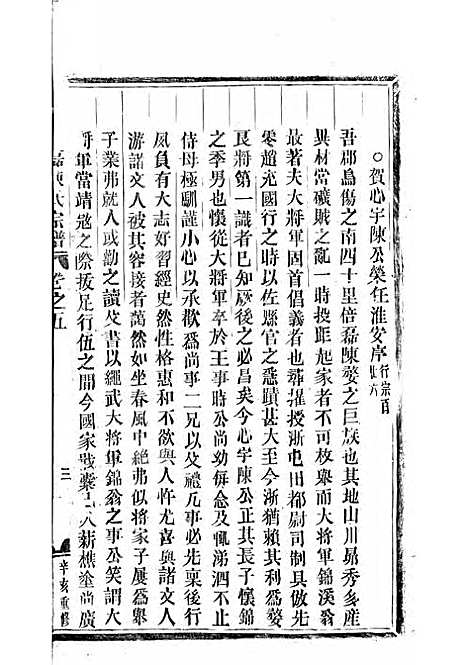 ○賀心宇陳公榮任淮安序 行宗百廿六
吾郡烏傷之南四十里倍磊陳婺之巨族也其地山川昴秀多産
異材當礦賊之亂一時投跽起家者不可枚舉而大將軍錦溪翁
故著夫大將軍固首倡義者也薜摧授浙屯田都尉司制具倣先
零趙充國行之時以佐縣官之急蹟甚大至今浙猶賴其利爲婺
良將第一識者巳知厥後之必昌矣今心宇陳公正其長子懷錦
之季男也懷從大將軍卒於王事時公尚幼每念及輒涕泗不止
侍母極馴謹小心以承歡爲尚事二兄以爻禮凡事必先稟後行
夙有大志好習經史然性格惠和不欲與人忤尤喜與諸文人
游諸文人被其容接者萬然如坐春風中絕弗似將家子屢爲舉
子業弗就人或勸之讀父書以繩武大將軍錦翁之事公笑謂大
將軍當靖宼之際拔足行伍之間今國家戢櫜 人薪樵塗尚廣
磊陳大宗譜 卷之五
三
辛亥重修